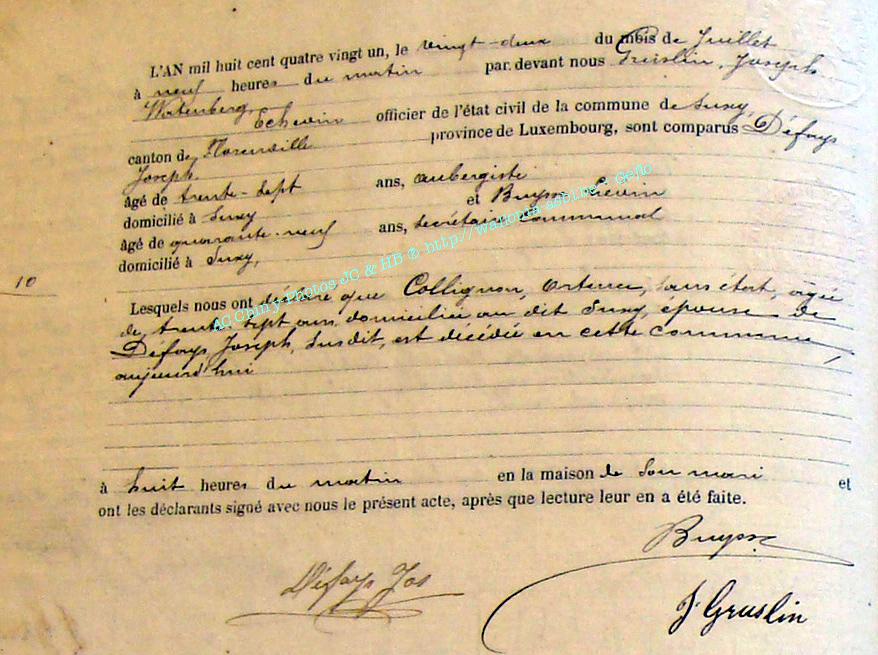 L'AN mil huit cent quatre vingt un, le vingt-deux du mois de Juillet
à neuf heures du matin par devant nous Gruslin, Joseph
Echevin officier de l'état civil de la commune de Suxy,
canton de Florenville province de Luxembourg, sont comparus Défays
Joseph
âgé de trente-sept ans, aubergiste
domicilié à Suxy et Buysse
âgé de quarante-neuf ans, secrétaire communal
domicilié à Suxy,
10
Lesquels nous ont déclaré que Collignon, sans état, âgée
de trente sept ans, domiciliée au dit Suxy, épouse de
Défays, Joseph, susdit, est décédée en cette commune,
aujourd'hui
à huit heures du matin en la maison de son mari et
ont les déclarants signé avec nous le présent acte, après que lecture leur en a été faite.
Buysse
Défays Jos
J. Gruslin
AC Chiny-Photos JC & HB ® http://wallonia-asbl.be